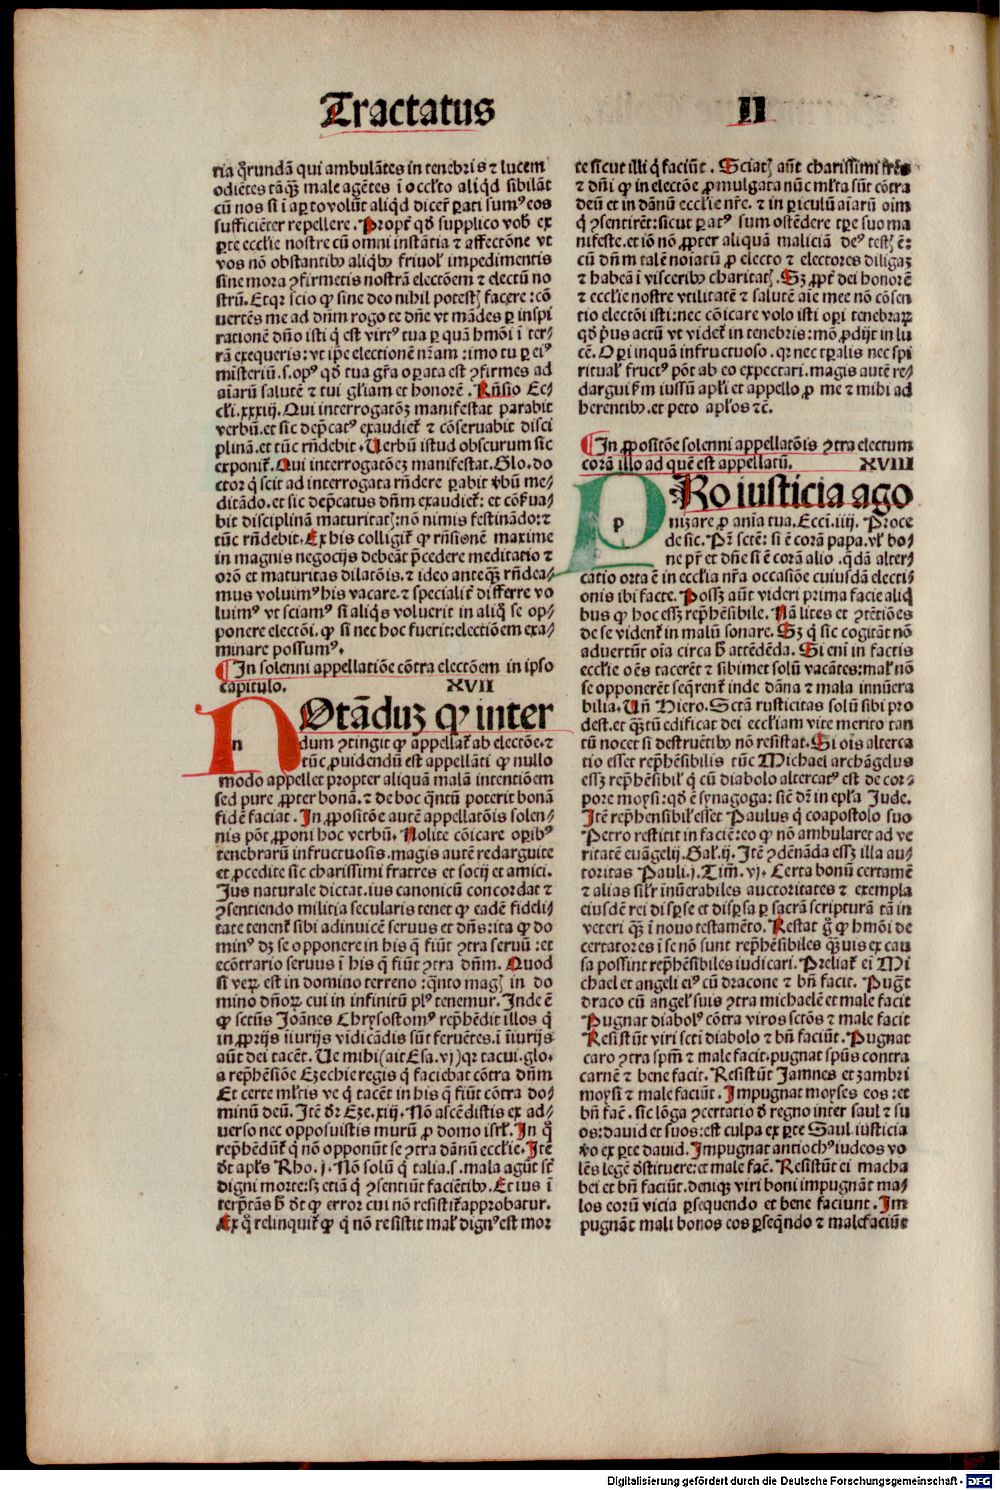 Tractatus II
ria qͦrundā qui ambulātes in tenebris ⁊ lucem
odiētes tāqꝫ male agētes ī occl̓to aliqd̓ sibilāt
cū nos si ī aꝑto volūt aliqd̓ dicer̄ ꝑati sumꝰ eos
sufficiēter repellere. Propt̓ qd̓ supplico vob̓ ex
ꝑte eccl̓ie nostre cū omni instātia ⁊ affectōne vt
vos nō obstantibꝰ aliqbꝰ friuol̓ impedimentis
sine mora ꝯfirmetis nostrā electōem ⁊ electū no
strū. Etqꝛ scio ꝙ sine deo nihil potestꝭ facere: cō
uertēs me ad dn̄m rogo te dn̄e vt mādes ꝑ inspi
rationē dn̄o isti q̓ est virtꝰ tua ꝑ quā hmōi ī ter-
rā exequeris: vt ip̄e electionē nr̄am: imo tu ꝑ eiꝰ
misteriū.s.opꝰ qd̓ tua gr̄a oꝑata est ꝯfirmes ad
aīarū salutē ⁊ tui gl̓iam et honorē. Rn̄sio Ec-
cl̓i.xxxiij. Qui interrogatōꝫ manifestat parabit
verbū.et sic dep̄catꝰ exaudiet̓ ⁊ cōseruabit disci
plinā.et tūc rn̄debit. Verbū istud obscurum sic
exponit̓. Qui interrogatōeꝫ manifestat. Glo. do
ctor q̓ scit ad interrogata rn̄dere ꝑabit v̓bū me-
ditādo.et sic dep̄catus dn̄m exaudiet̓: et cōf̓ua-
bit disciplinā maturitatꝭ: nō nimis festinādo: ⁊
tūc rn̄debit. Ex his colligit̓ ꝙ rn̄sionē maxime
in magnis negocijs debeāt p̄cedere meditatio ⁊
orō et maturitas dilatōis.⁊ ideo anteqꝫ rn̄dea-
mus voluimꝰ his vacare.⁊ specialit̓ differre vo
luimꝰ vt sciamꝰ si aliqs̓ voluerit in aliq̓ se op-
ponere electōi.ꝙ si nec hoc fuerit: electiōem exa-
minare possumꝰ.
¶In solenni appellatiōe cōtra electōem in ipso
capitulo. XVII
NOtāduꝫ ꝙ inter
n
dum ꝯtingit ꝙ appellat̓ ab electōe.⁊
tūc ꝓuidendū est appellāti ꝙ nullo
modo appellet propter aliquā malā intentiōem
sed pure ꝓpter bonā.⁊ de hoc qn̄tū poterit bonā
fidē faciat. In ꝓpositōe autē appellatōis solen-
nis pōt ꝓponi hoc verbū. Nolite cōicare oꝑibꝰ
tenebrarū infructuosis.magis autē redarguite
et ꝓcedite sic charissimi fratres et socij et amici.
Jus naturale dictat.ius canonicū concordat ⁊
ꝯsentiendo militia secularis tenet ꝙ eadē fideli-
tate tenent̓ sibi adinuicē seruus et dn̄s: ita ꝙ do
minꝰ dꝫ se opponere in his q̓ fiūt ꝯtra seruū: et
ecōtrario seruus ī his q̓ fiūt ꝯtra dn̄m. Quod
si veꝝ est in domino terreno: qn̄to magꝭ in do
mino dn̄oꝝ cui in infinitū plꝰ tenemur. Inde ē
ꝙ sctūs Joānes Chrysostomꝰ rep̄hēdit illos q̓
in ꝓprijs iīurijs vidicādis sūt feruētes.ī iīurijs
aūt dei tacēt. Ve mihi(ait Esa.vj)qꝛ tacui.glo.
a rep̄hēsiōe Ezechie regis q̓ faciebat cōtra dn̄m
Et certe ml̓tis ve q̓ tacēt in his q̓ fiūt cōtra do-
minū deū. Itē dr̄ Eze.xiij. Nō ascēdistis ex ad-
uerso nec opposuistis murū ꝓ domo isrl̓. In q̓
rep̄hēdūt̓ q̓ nō opponūt se ꝯtra dānū eccl̓ie. Itē
dt̓ apl̓s Rho.j. Nō solū q̓ talia.s.mala agūt st̓
digni morte: sꝫ etiā q̓ ꝯsentiūt faciētibꝰ. Et ius ī
terp̄tās h̓ dt̓ ꝙ error cui nō resistit̓ approbatur.
Ex q̓ relinquit̓ ꝙ q̓ nō resistit mal̓ dignꝰ est mor
te sicut illi q̓ faciūt. Sciatꝭ aūt charissimi fr̄es
⁊ dn̄i ꝙ in electōe ꝓmulgata nūc ml̓ta sūt cōtra
deū et in dānū eccl̓ie nr̄e.⁊ in ꝑiculū aīarū oīm
q̓ ꝯsentirēt: sicut ꝑatꝰ sum ostēdere tꝑe suo ma
nifeste.et iō nō ꝓpter aliquā maliciā deꝰ testꝭ ē:
cū dn̄m talē noīatū ꝓ electo ⁊ electores diligaꝫ
⁊ habeā ī visceribꝰ charitatꝭ. Sꝫ ꝓpt̓ dei honorē
⁊ eccl̓ie nostre vtilitatē ⁊ salutē aīe mee nō cōsen
tio electōi isti: nec cōicare volo isti oꝑi tenebraꝝ
qd̓ p̓us actū vt videt̓ in tenebris: mō ꝓdijt in lu
cē. Oꝑi inquā infructuoso.qꝛ nec tꝑalis nec spi
ritual̓ fructꝰ pōt ab eo expectari.magis autē re-
dargui k̓m iussū apl̓i et appello ꝓ me ⁊ mihi ad
herentibꝰ.et peto apl̓os ⁊c̄.
¶In ꝓpositōe solenni appellatōis ꝯtra electum
corā illo ad quē est appellatū. XVIII
PRo iusticia ago
p
nizare ꝓ anīa tua. Ecci.iiij. Proce
de sic. Pr̄ sctē: si ē corā papa.vl̓ bo-
ne pr̄ et dn̄e si ē corā alio.q̓dā alter-
catio orta ē in eccl̓ia nr̄a occasiōe cuiusdā electi-
onis ibi facte. Possꝫ aūt videri prima facie aliq̓
bus ꝙ hoc essꝫ rep̄hēsibile. Nā lites et ꝯtētiōes
de se vident̓ in malū sonare. Sꝫ q̓ sic cogitāt nō
aduertūt oīa circa h̓ attēdēda. Si enī in factis
eccl̓ie oēs tacerēt ⁊ sibimet solū vacātes: mal̓ nō
se opponerēt seq̄rent̓ inde dāna ⁊ mala innūera
bilia. Vn̄ Hiero. Sctā rusticitas solū sibi pro
dest.et qꝫtū edificat dei eccl̓iam vite merito tan
tū nocet si destruētibꝰ nō resistat. Si oīs alterca
tio esset rep̄hēsibilis tūc Michael archāgelus
essꝫ rep̄hēsibil̓ q̓ cū diabolo altercatꝰ est de cor-
pore moysi: qd̓ ē synagoga: sicut dr̄ in epl̓a Jude.
Itē rep̄hēsibil̓ esset Paulus q̓ coapostolo suo
Petro restitit in faciē: eo ꝙ nō ambularet ad ve
ritatē euāgelij. Gal̓.ij. Itē ꝯdēnāda essꝫ illa au-
toritas Pauli.j.Tim̄.vj. Certa bonū certamē
⁊ alias sil̓r inūerabiles auctoritates ⁊ exempla
eiusdē rei disꝑse et disꝑsa ꝑ sacrā scripturā tā in
veteri qꝫ ī nouo testamēto. Restat g̓ ꝙ hmōi de
certatores ī se nō sunt rep̄hēsibiles qꝫuis ex cau
sa possint rep̄hēsibiles iudicari. Preliat̓ ei̓ Mi
chael et angeli eiꝰ cū dracone ⁊ bn̄ facit. Pugt̓
draco cū angel̓ suis ꝯtra michaelē et male facit
Pugnat diabolꝰ cōtra viros sctōs ⁊ male facit
Resistūt viri sctī diabolo ⁊ bn̄ faciūt. Pugnat
caro ꝯtra spm̄ ⁊ male facit.pugnat spūs contra
carnē ⁊ bene facit. Resistūt Jamnes et zambri
moysi ⁊ male faciūt. Impugnat moyses eos: et
bn̄ faē. sic lōga ꝯcertatio d̓ regno inter saul ⁊ su
os: dauid et suos: est culpa ex ꝑte Saul.iusticia
v̓o ex ꝑte dauid. Impugnat antiochꝰ iudeos vo
lēs legē d̓stituere: et male faē. Resistūt ei macha
bei et bn̄ faciūt.deniqꝫ viri boni impugnāt ma-
los eorū vicia ꝑsequendo et bene faciunt. Im
pugnāt mali bonos eos ꝑseq̄ndo ⁊ male faciūt
Digitalisierung gefördert durch die Deutsche Forschungsgemeinschaft - DFG